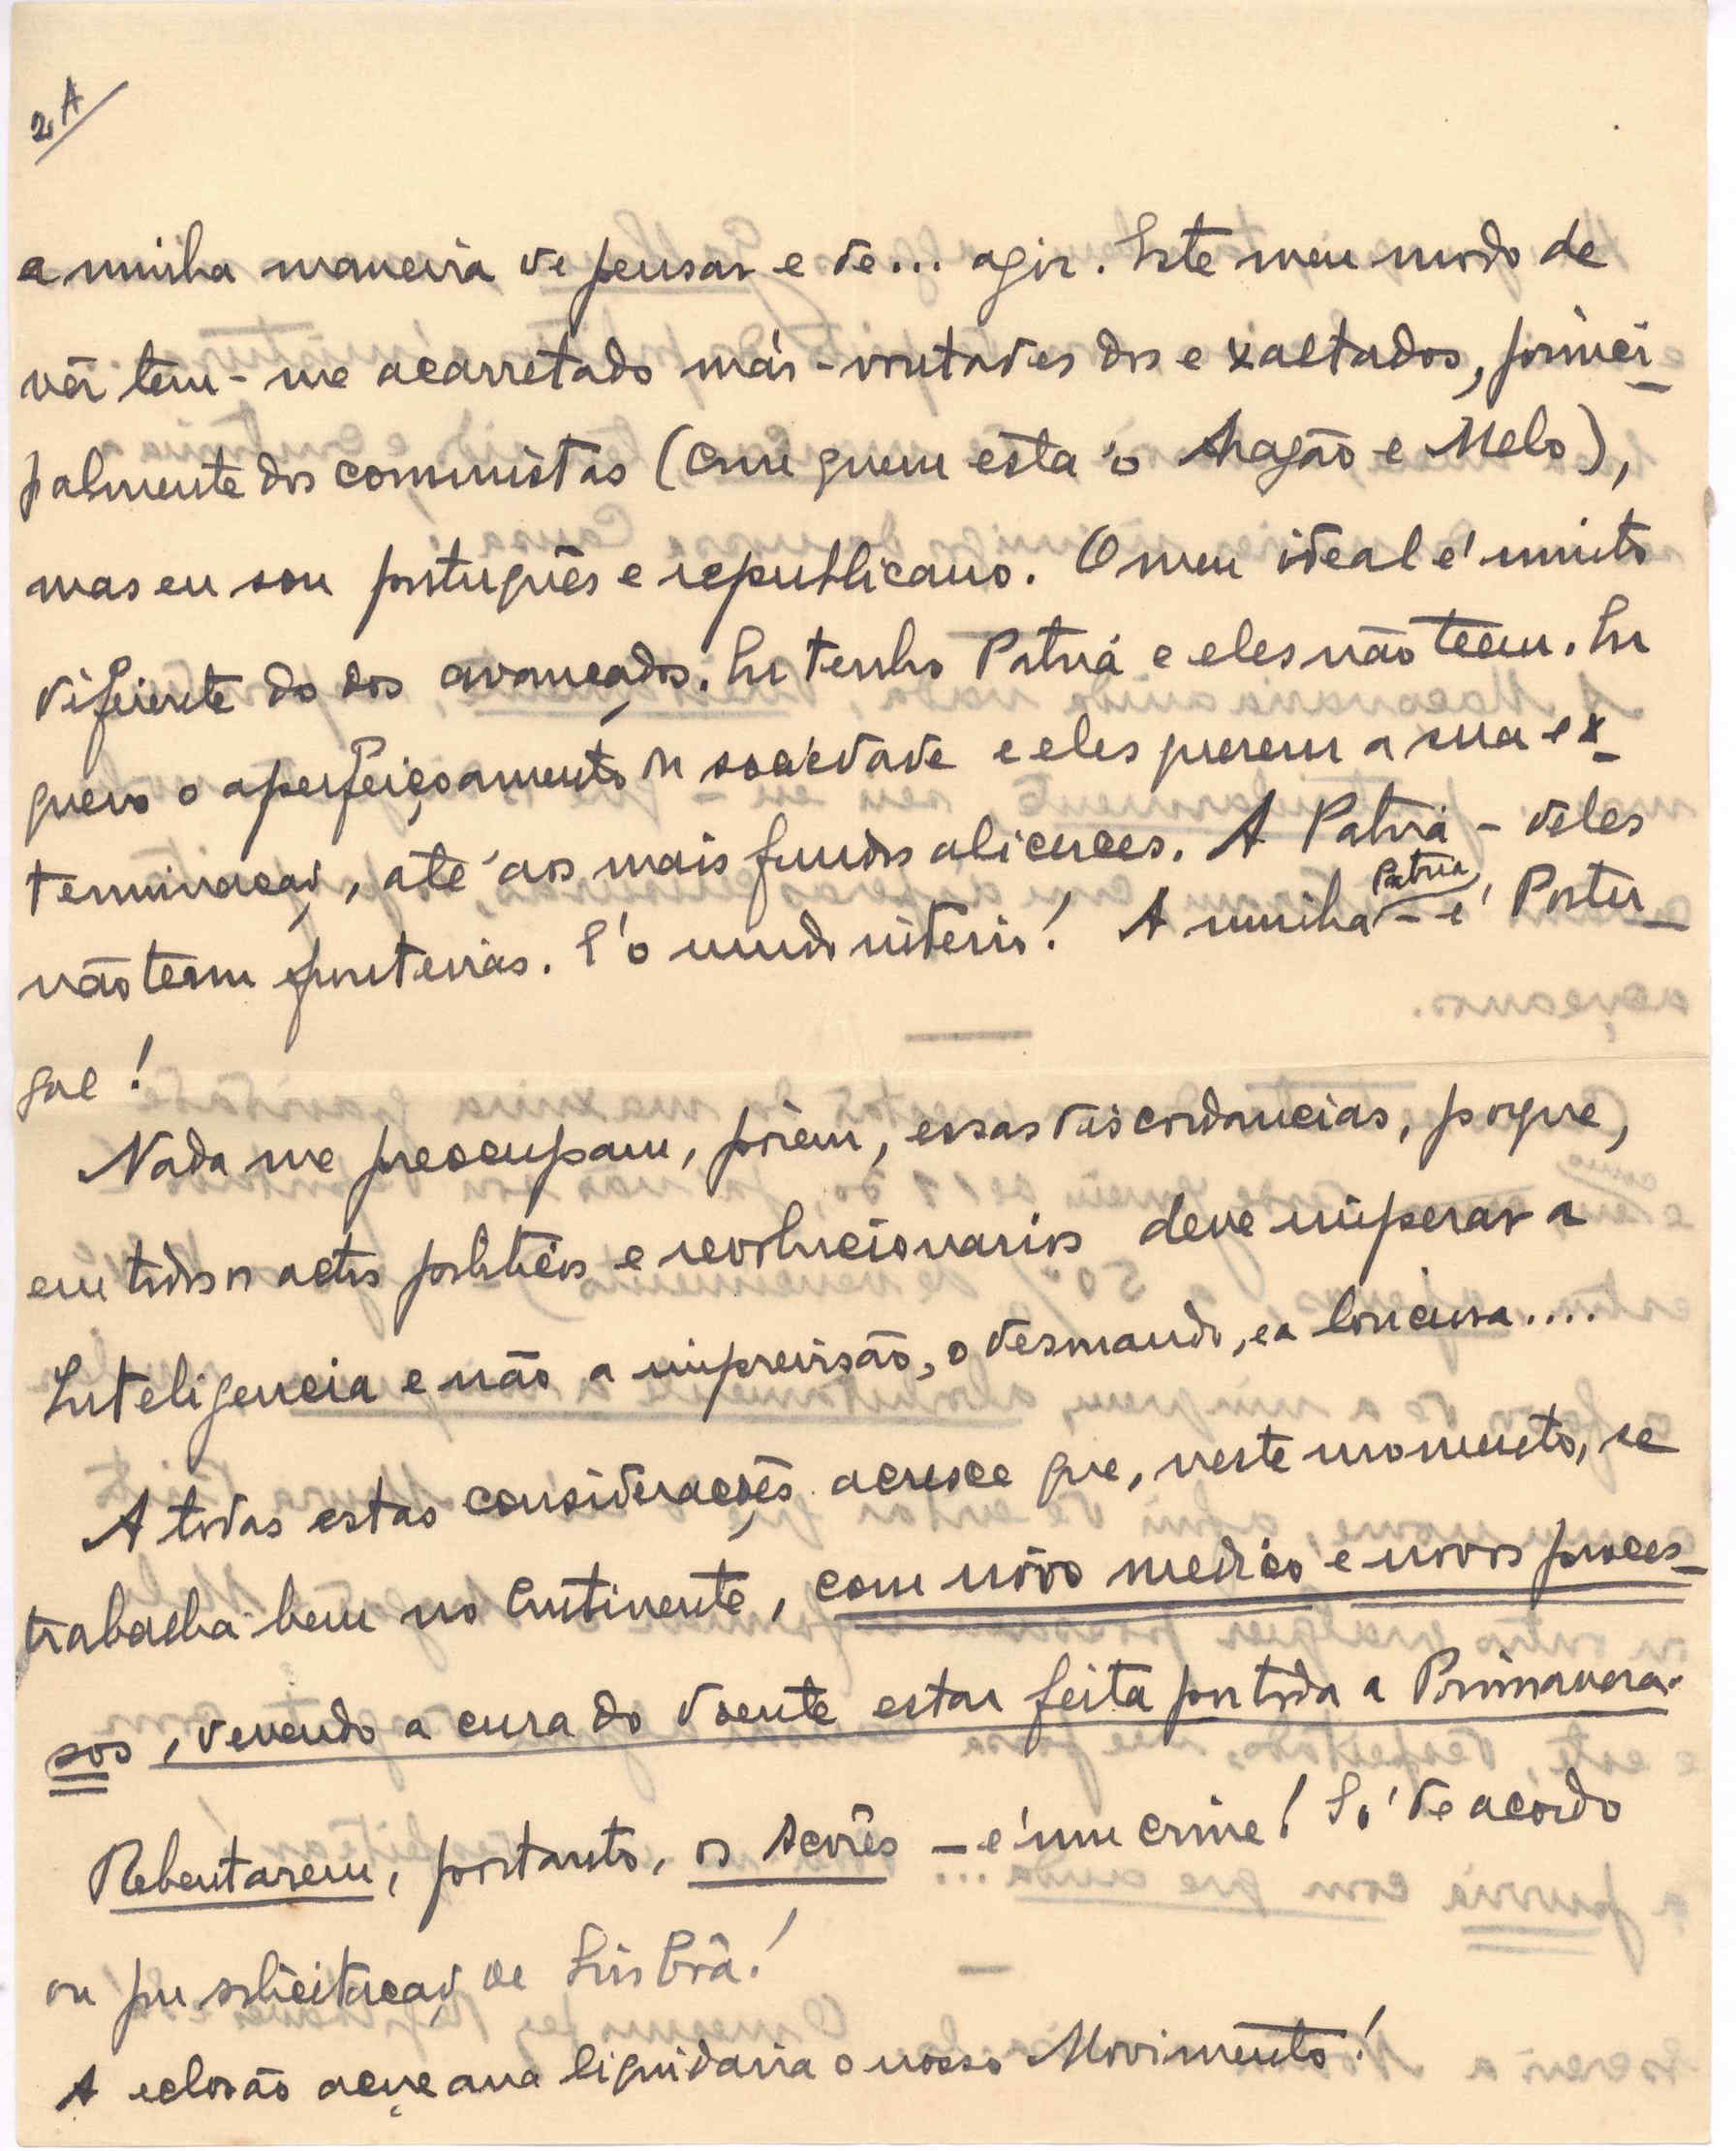 2A
a minha maneira de pensar e de... agir. Este meu modo de
vêr tem-me acarretado más-vontades dos exaltados, princi-
palmente dos comunistas (com quem está o Aragão e Melo),
mas eu sou português e republicano. O meu ideal é muito
diferente do dos avançados. Eu tenho Patria e eles não teem. Eu
quero o aperfeiçoamento da sociedade e eles querem a sua ex-
terminação, até aos mais fundos alicerces. A Patria - deles
não teem fronteiras. É o mundo inteiro! A minha Patria - é Portu-
gal!
Nada me preocupam, porém, essas discordancias, porque,
em todos os actos politicos e revolucionarios deve imperar a
Inteligencia e não a imprevisão, o desmando, e a loucura....
A todas estas considerações acresce que, neste momento, se
trabalha bem no Continente, com nôvo medico e novos proces-
sos, devendo a cura do doente estar feita por toda a Primavera.
Rebentarem, portanto, os Açôres - é um crime! Só de acordo
ou por solicitação de Lisbôa!
A eclosão açoreana liquidaria o nosso Movimento!